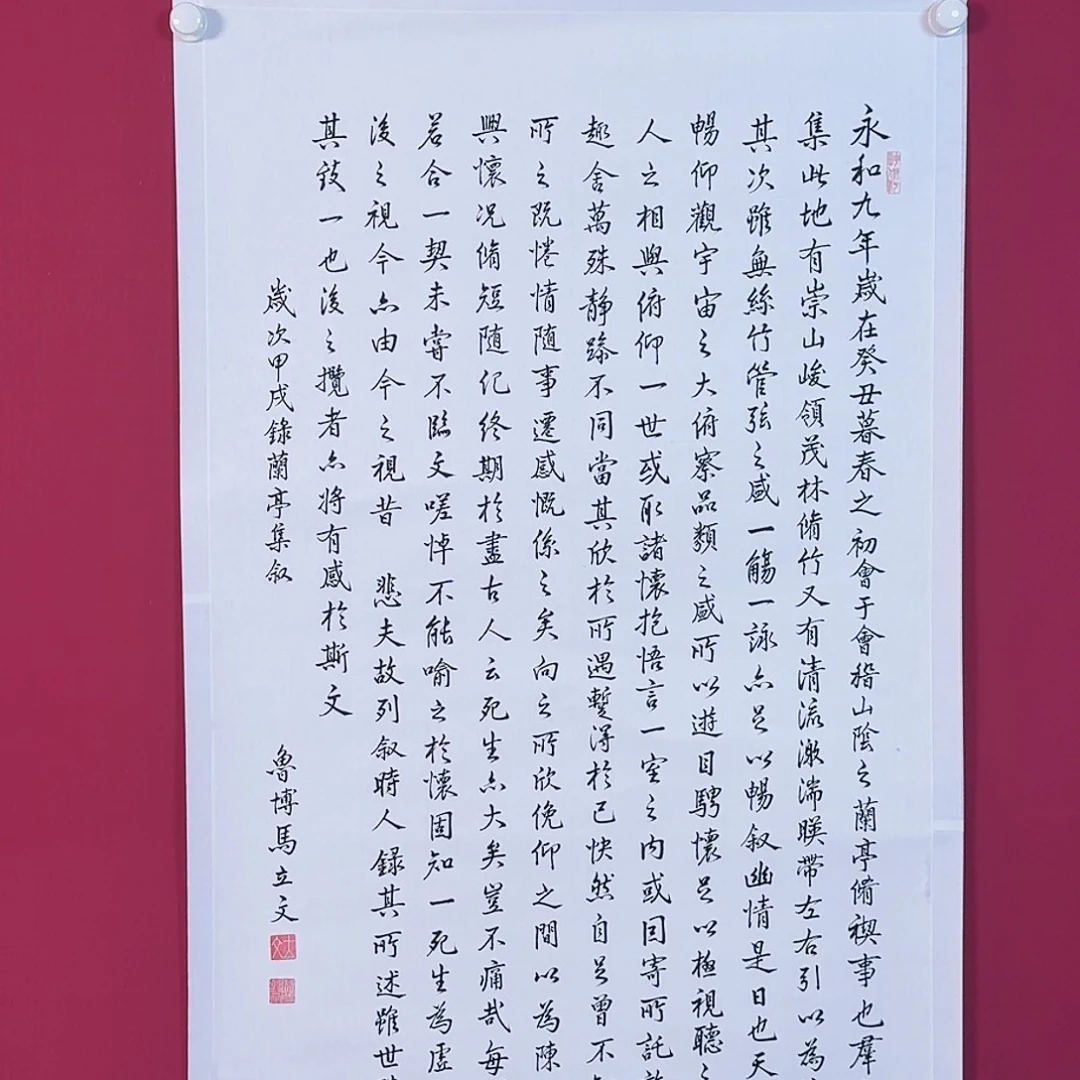 永和九年歲在癸丑暮春之初會于會稽山陰之蘭亭脩禊事也羣
集此地有崇山峻領茂林脩竹又有清流激湍暎帶左右引以為
其次雖無絲竹管弦之盛一觴一詠亦足以暢叙幽情是日也天
暢仰觀宇宙之大俯察品類之盛所以遊目騁懷足以極視聽之
人之相與俯仰一世或取諸懷抱悟言一室之內或因寄所託
趣舍萬殊静躁不同當其欣於所遇蹔得於己快然自足曾不
所之既惓情随事遷感慨係之矣向之所欣俛仰之間以為陳
興懷况脩短随化終期於盡古人云死生亦大矣豈不痛哉每
若合一契未嘗不臨文嗟悼不能喻之於懷固知一死生為虛
後之視今亦由今之視昔 悲夫故列叙時人録其所述雖世
其致一也後之攬者亦将有感於斯文
歲次甲戌錄蘭亭集叙 魯博馬立文